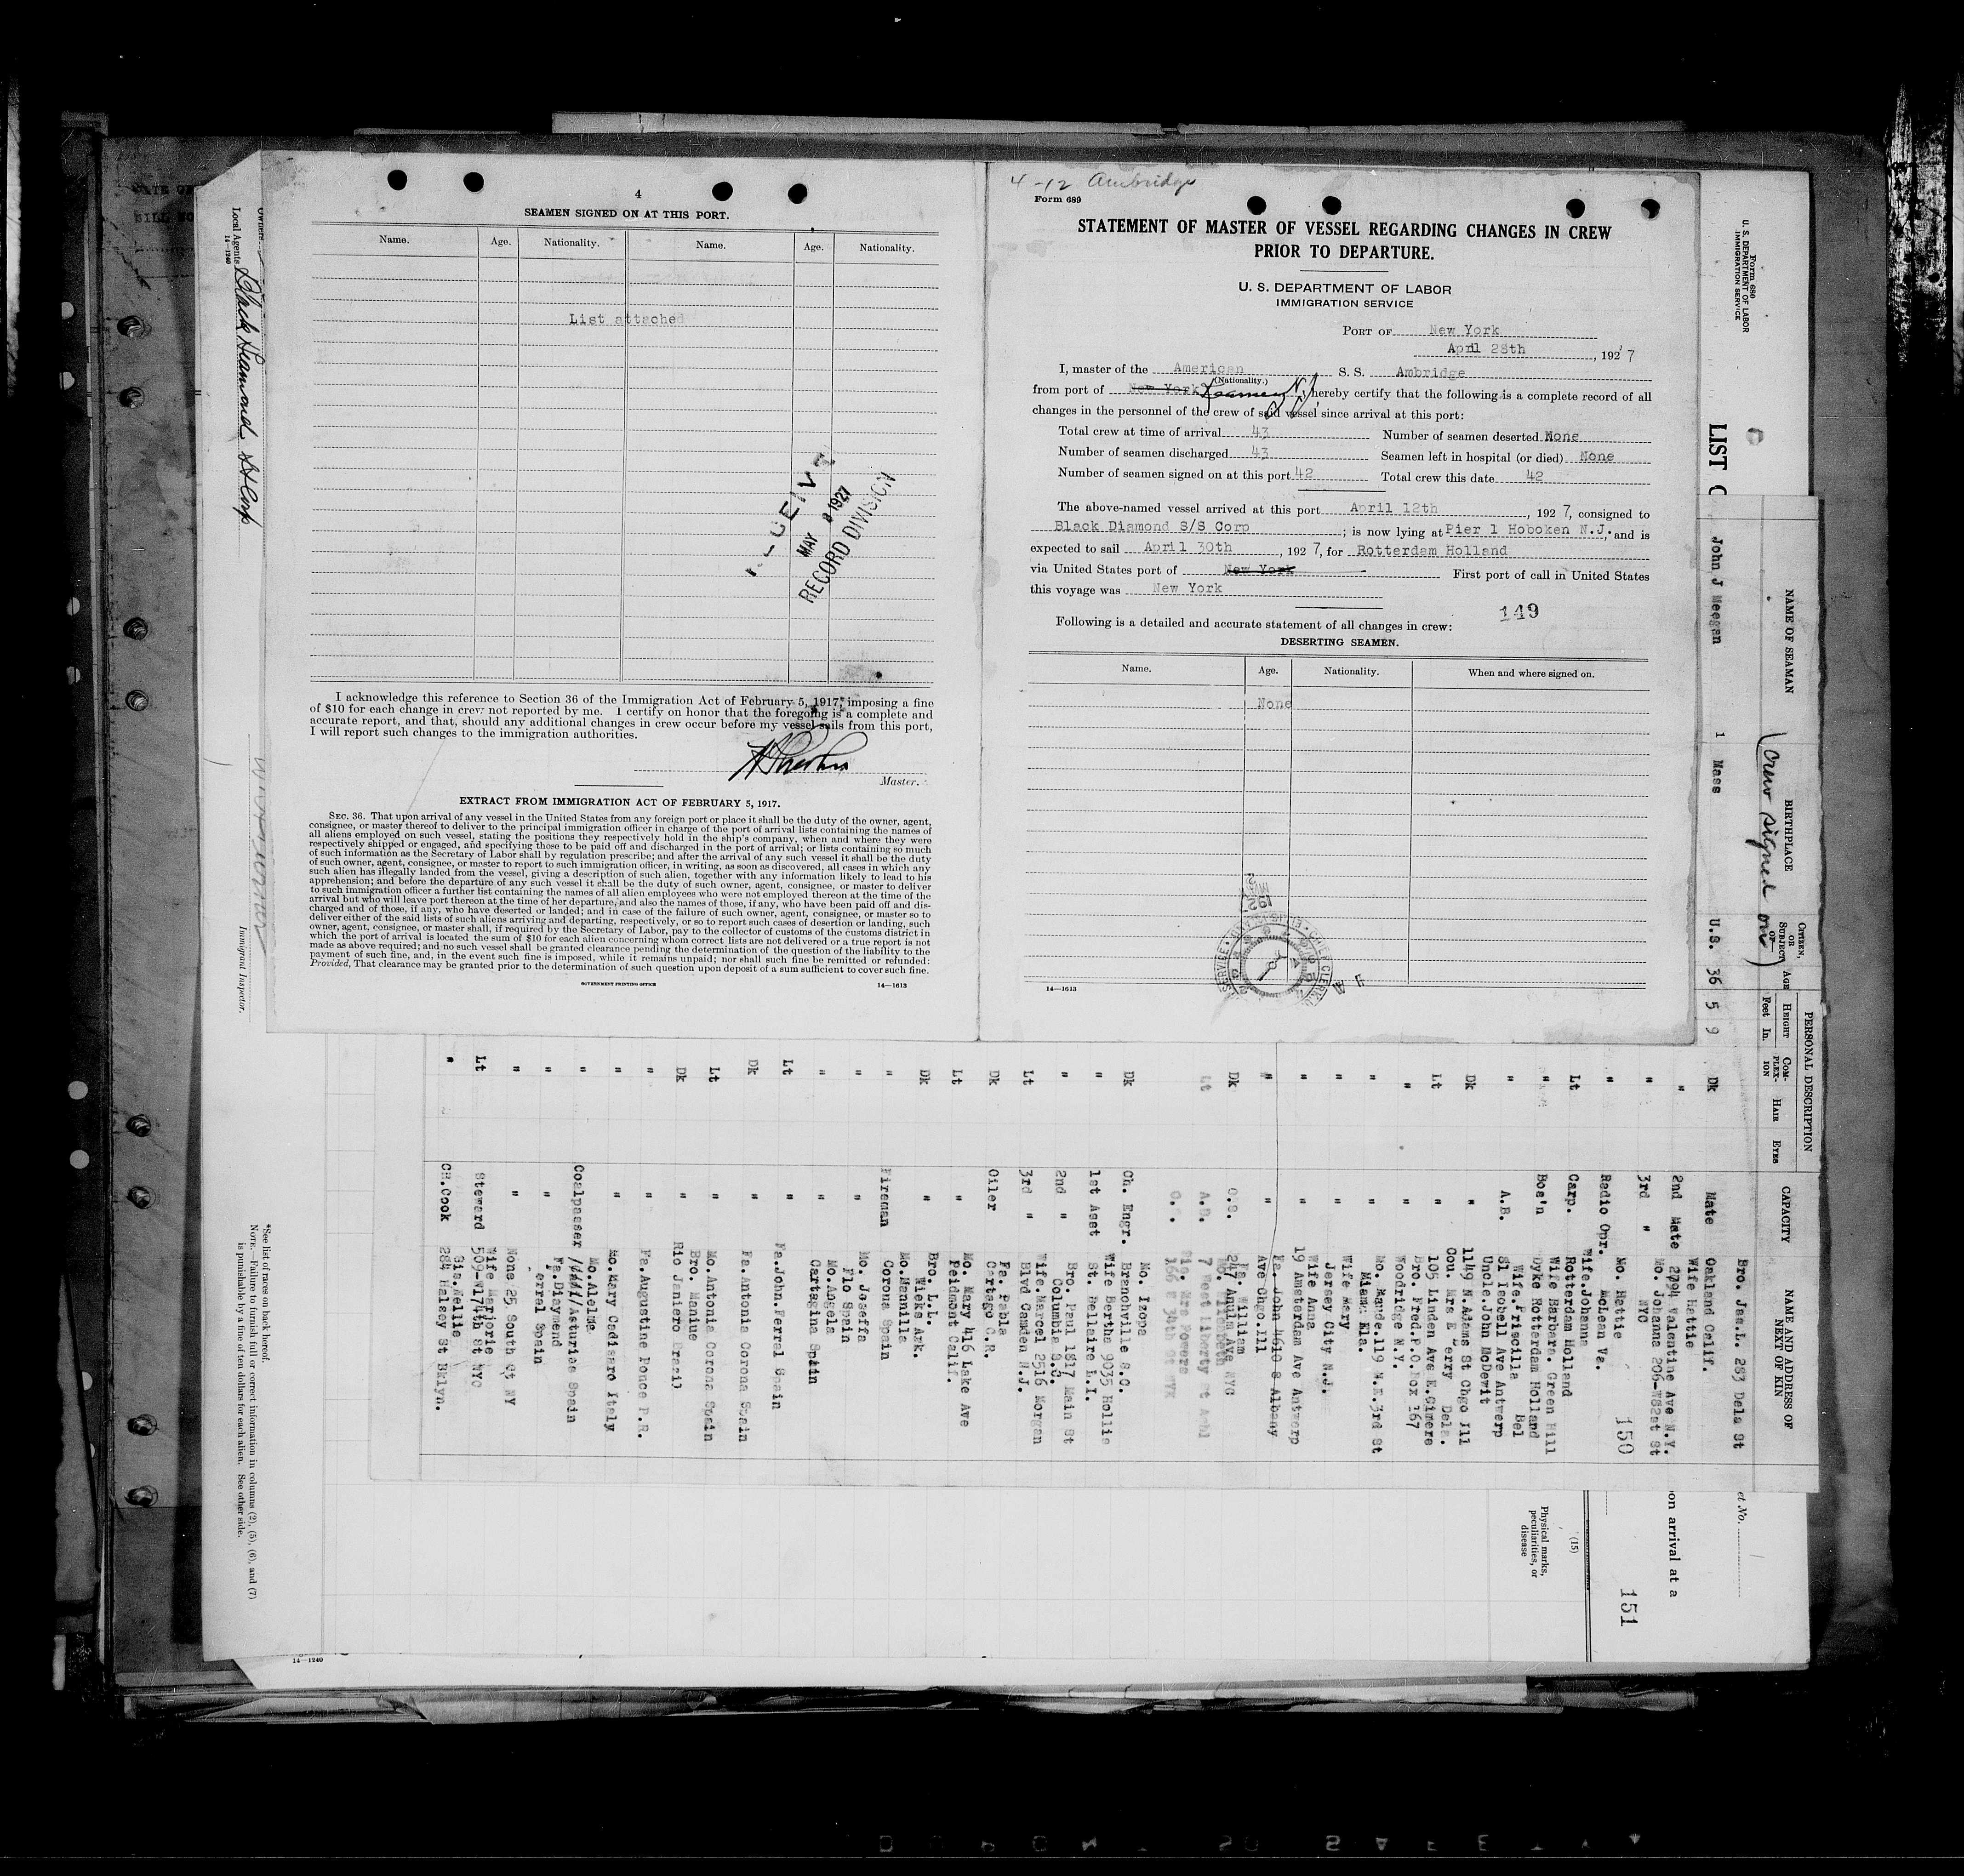 4
SEAMEN SIGNED ON AT THIS PORT.
Name. Age. Nationality. Name. Age. Nationality.
List attached
MAY 3 1927
RECORD DIVISION
I acknowledge this reference to Section 36 of the Immigration Act of February 5, 1917, imposing a fine
of $10 for each change in crew not reported by me. I certify on honor that the foregoing is a complete and
accurate report, and that, should any additional changes in crew occur before my vessel sails from this port,
I will report such changes to the immigration authorities.
Master.
EXTRACT FROM IMMIGRATION ACT OF FEBRUARY 5, 1917.
SEC. 36. That upon arrival of any vessel in the United States from any foreign port or place it shall be the duty of the owner, agent,
consignee, or master thereof to deliver to the principal immigration officer in charge of the port of arrival lists containing the names of
all aliens employed on such vessel, stating the positions they respectively hold in the ship's company, when and where they were
respectively shipped or engaged, and specifying those to be paid off and discharged in the port of arrival; or lists containing so much
of such information as the Secretary of Labor shall by regulation prescribe; and after the arrival of any such vessel it shall be the duty
of such owner, agent, consignee, or master to report to such immigration officer, in writing, as soon as discovered, all cases in which any
such alien has illegally landed from the vessel, giving a description of such alien, together with any information likely to lead to his
apprehension; and before the departure of any such vessel it shall be the duty of such owner, agent, consignee, or master to deliver
to such immigration officer a further list containing the names of all alien employees who were not employed thereon at the time of the
arrival but who will leave port thereon at the time of her departure, and also the names of those, if any, who have been paid off and dis-
charged and of those, if any, who have deserted or landed; and in case of the failure of such owner, agent, consignee, or master so to
deliver either of the said lists of such aliens arriving and departing, respectively, or so to report such cases of desertion or landing, such
owner, agent, consignee, or master, shall, if required by the Secretary of Labor, pay to the collector of customs of the customs district in
which the port of arrival is located the sum of $10 for each alien concerning whom correct lists are not delivered or a true report is not
made as above required; and no such vessel shall be granted clearance pending the determination of the question of the liability to the
payment of such fine, and, in the event such fine is imposed, while it remains unpaid; nor shall such fine be remitted or refunded:
Provided, That clearance may be granted prior to the determination of such question upon deposit of a sum sufficient to cover such fine.
GOVERNMENT PRINTING OFFICE 14—1613
4-12 Ambridge
Form 689
STATEMENT OF MASTER OF VESSEL REGARDING CHANGES IN CREW
PRIOR TO DEPARTURE.
U. S. DEPARTMENT OF LABOR
IMMIGRATION SERVICE
PORT OF New York
April 28th, 1927
I, master of the American S. S. Ambridge
(Nationality.)
from port of New York N.J., hereby certify that the following is a complete record of all
changes in the personnel of the crew of said vessel since arrival at this port:
Total crew at time of arrival 43 Number of seamen deserted None
Number of seamen discharged 43 Seamen left in hospital (or died) None
Number of seamen signed on at this port 42 Total crew this date 42
The above-named vessel arrived at this port April 12th, 1927, consigned to
Black Diamond S/S Corp; is now lying at Pier 1 Hoboken N.J., and is
expected to sail April 30th, 1927, for Rotterdam Holland
via United States port of New York First port of call in United States
this voyage was New York
149
Following is a detailed and accurate statement of all changes in crew:
DESERTING SEAMEN.
Name. Age. Nationality. When and where signed on.
None
14—1613
Form 680
U. S. DEPARTMENT OF LABOR
IMMIGRATION SERVICE
LIST
NAME OF SEAMAN
BIRTHPLACE
CITIZEN, OR SUBJECT OF
AGE
PERSONAL DESCRIPTION
HEIGHT
Feet In.
COMPLEXION
HAIR
EYES
CAPACITY
NAME AND ADDRESS OF
NEXT OF KIN
(Crew signed on)
John J Meegan 1 Mass U.S. 36 5 9 Dk Mate
Bro. Jas.L. 283 Dela St
Oakland Calif.
Wife Hattie
2nd Mate 2794 Valentine Ave N.Y.
Mo. Johanna 206-W82st St
3rd " NYC
150
Mo. Hattie
Radio Opr. McLean Va.
Wife.Johanna
Lt Carp. Rotterdam Holland
Wife Barbara. Green Hill
Bos'n Dyke Rotterdam Holland
Wife.Priscilla Bel
A.B. 81 Isobell Ave Antwerp
Uncle.John McDewit
Dk " 1149 N.Adams St Chgo Ill
Cou. Mrs E Perry Dela.
Lt " 105 Linden Ave E.Gimere
Bro. Fred.P.O.Box 167
" " Woodridge N.Y.
Mo. Maude.119 N.E.3rd St
" " Miami Fla.
Wife Mary
" " Jersey City N.J.
Wife Anna
" " 19 Amsterdam Ave Antwerp
Fa. John 4610 S Albany
" " Ave Chgo.Ill
Fa. William
Dk O.S. 247 Anula Ave NYC
Lt A.B. 7 West Liberty St
Sis. Mrs Powers
366 E 30th St NYK
Mo. Izora
Dk Ch. Engr. Branchville S.C.
Wife Bertha 9035 Hollis
" 1st Asst St. Bellaire L.I.
Bro. Paul 1817 Main St
" 2nd " Columbia S.C.
Wife.Marcel 2516 Morgan
Lt 3rd " Blvd Camden N.J.
Fa. Pabla
Dk Oiler Cartago C.R.
Mo. Mary 416 Lake Ave
Lt " Peidmont Calif.
Bro. L.L.
Dk " Wicks Ark.
Mo.Mannilla
" Fireman Corona Spain
Mo. Josefa
" " Flo Spain
Mo.Angela
" " Cartagina Spain
Lt " Fa.John.Ferral Spain
Dk " Fa.Antonia Corona Spain
Lt " Mo.Antonia Corona Spain
Bro. Maniue
Dk " Rio Janiero Brazil
" " Fa.Augustine Ponce P.R.
" " Mo.Mary Cadisaro Italy
Mo.Aleime
" Coalpasser Asturias Spain
Fa.Diaymend
" " Ferral Spain
" " None 25 South St NY
Wife Marjorie
Lt Steward 509-W174th St NYC
Sis.Nellie
" CH.Cook 284 Halsey St Bklyn.
et No.
on arrival at a
(15)
Physical marks,
peculiarities, or
disease
151
Local Agents Black Diamond SS Corp
14—1240
Immigrant Inspector.
*See list of races on back hereof.
NOTE.—Failure to furnish full or correct information in columns (2), (5), (6), and (7)
is punishable by a fine of ten dollars for each alien. See other side.
14—1240
DUPONT SAFETY